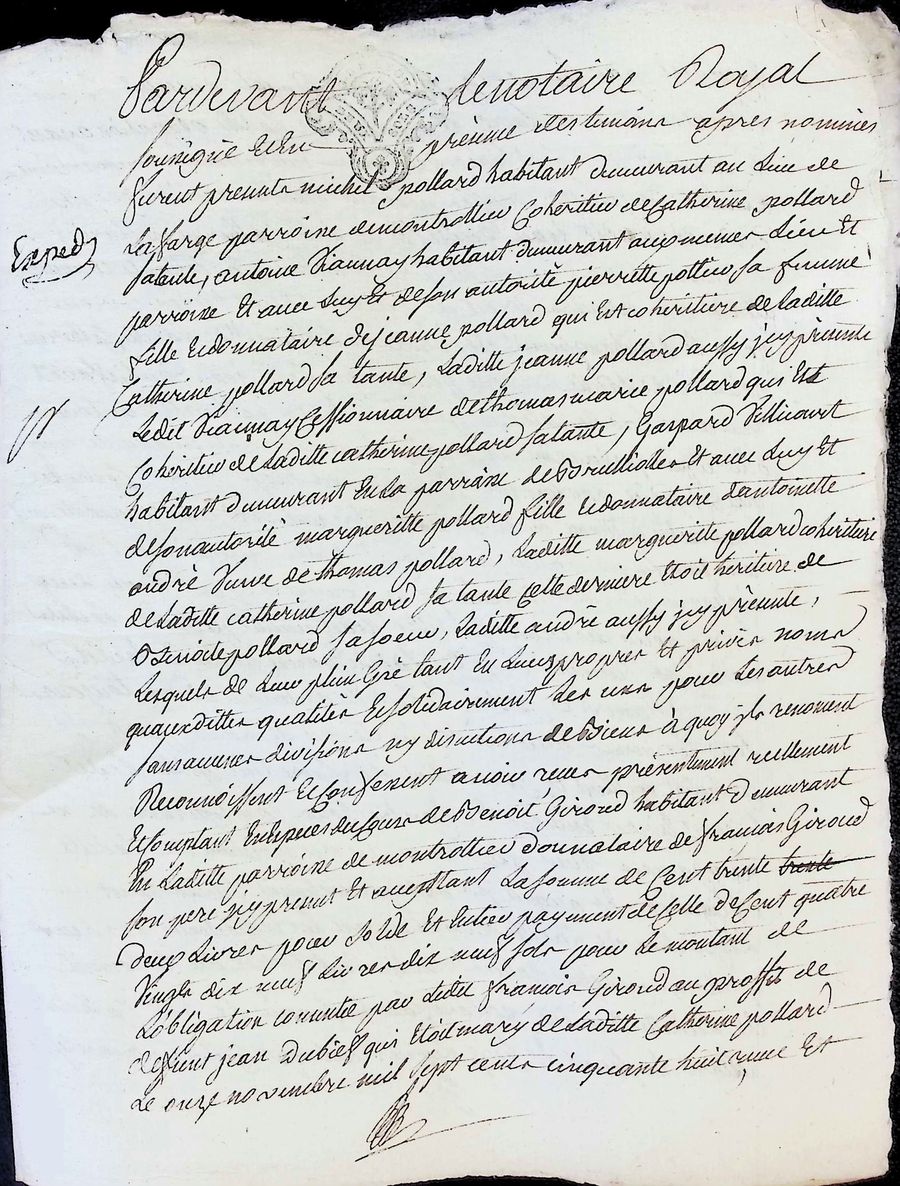 Pardevant le notaire Royal
soussigné et en présence des temoins apres nommés
furent presents michel pollard habitant demeurant au lieu de
la farge parroisse de montrottier Coheritier de Catherine pollard
Exped
sa tante, antoine Viannay habitant demeurant aux memes lieu Et
parroisse Et avec luy Et de son autorité pierrette pottier sa femme
fille et donnataire de jeanne pollard qui Est coheritiere de laditte
Catherine pollard sa tante, laditte jeanne pollard aussy jcy présente
ledit Viannay Cessionnaire de thomas marie pollard qui Est
Coheritier de laditte catherine pollard sa tante, Gaspard Villicourt
habitant demeurant En la parroisse de Brullioles Et avec luy Et
de son autorité margueritte pollard fille et donnataire d'antoinette
andré Veuve de thomas pollard, laditte marguerite pollard cohéritiere
de laditte catherine pollard sa tante Cette derniere Etoit héritiere de
pollard sa soeur, laditte andré aussy jcy présente,
lesquels de leur plein Gré tant En leurs propres Et privés noms
quauxdittes qualités et solidairement les uns pour les autres
sans aucunes divisions ny discutions de Biens à quoy jls renoncent
Reconnoissent et confessent avoir receu présentement reellement
et comptant En especes du cours de Benoit Giroud habitant demeurant
En laditte parroisse de montrottier donnataire de françois Giroud
son pere jcy present Et acceptant la somme de Cent trente trente
deux livres pour solde Et Entier payment de celle de Cent quatre
Vingts dix neuf livres dix neuf sols pour le montant de
l'obligation consentie par ledit françois Giroud au proffit de
deffunt jean Dubief qui Etoit mary de laditte Catherine pollard
le onze novembre mil sept cents cinquante huit Et